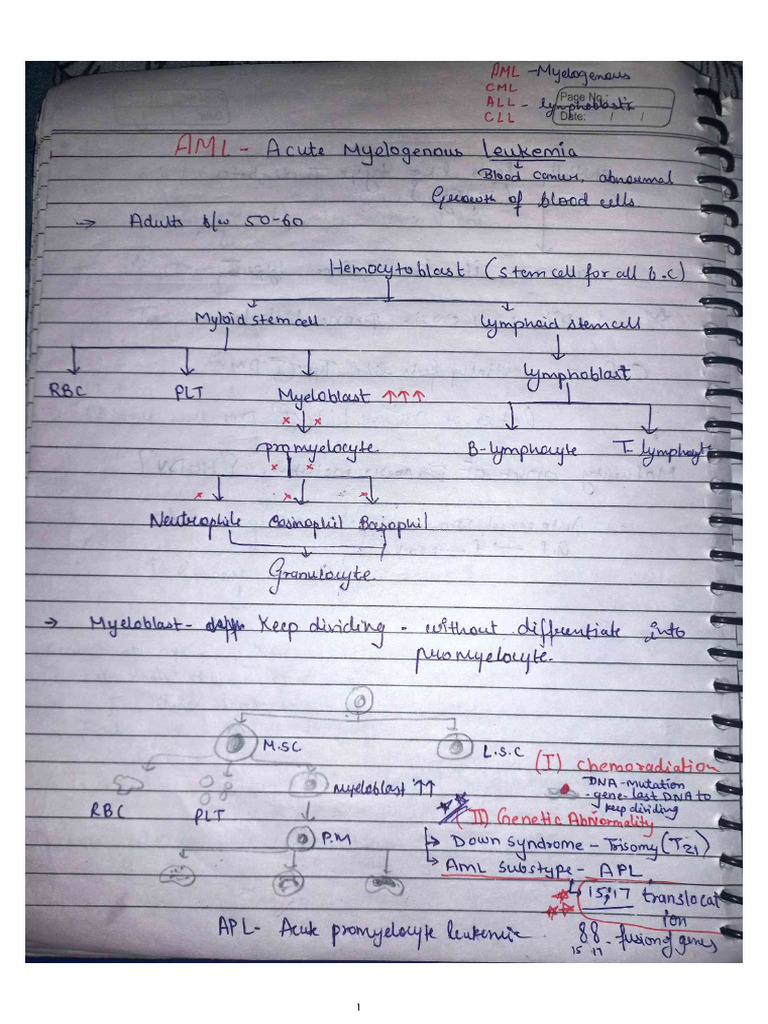 AML - Myelogenous
CML
ALL - lymphoblastis
CLL
Page No.:
Date: / /
AML - Acute Myelogenous Leukemia
Blood cancer, abnormal
Growth of blood cells
→ Adults b/w 50-60
Hemocytoblast (stem cell for all b.c)
Myloid stem cell
lymphoid stem cell
lymphoblast
RBC PLT Myeloblast ↑↑↑
promyelocyte
B-lymphocyte T-lymphocyte
Neutrophile Eosinophil Basophil
Granulocyte
→ Myeloblast - Keep dividing - without diffrentiate into
promyelocyte.
M.SC
L.S.C
(I) Chemoradiation
DNA-mutation
- gene last DNA to
keep dividing
RBC PLT Myeloblast ↑↑
(II) Genetic Abnormality
P.M
Down syndrome - Trisomy (T21)
AML Substype - APL
15;17 translocat
ion
APL - Acute promyelocyte leukemic
88 - fusion of genes
15 17
1